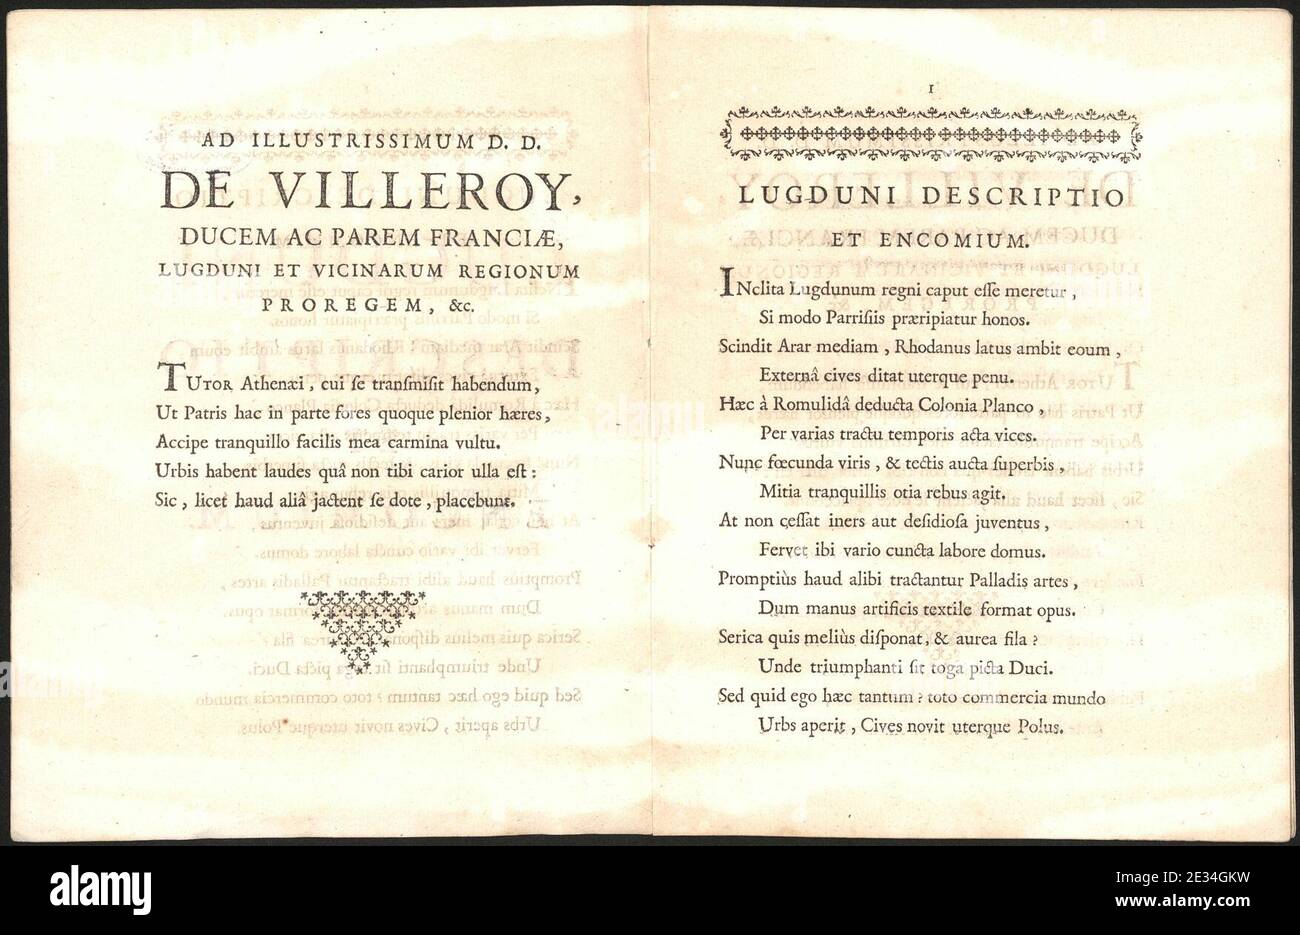 AD ILLUSTRISSIMUM D. D.
DE VILLEROY,
DUCEM AC PAREM FRANCIÆ,
LUGDUNI ET VICINARUM REGIONUM
PROREGEM, &c.
TUTOR Athenæi, cui ſe tranſmiſit habendum,
Ut Patris hac in parte fores quoque plenior hæres,
Accipe tranquillo facilis mea carmina vultu.
Urbis habent laudes quâ non tibi carior ulla eſt:
Sic, licet haud aliâ jactent ſe dote, placebunt.
1
LUGDUNI DESCRIPTIO
ET ENCOMIUM.
INclita Lugdunum regni caput eſſe meretur,
Si modo Parriſiis præripiatur honos.
Scindit Arar mediam, Rhodanus latus ambit eoum,
Externâ cives ditat uterque penu.
Hæc à Romulidâ deducta Colonia Planco,
Per varias tractu temporis acta vices.
Nunc fœcunda viris, & tectis aucta ſuperbis,
Mitia tranquillis otia rebus agit.
At non ceſſat iners aut deſidioſa juventus,
Fervet ibi vario cuncta labore domus.
Promptiùs haud alibi tractantur Palladis artes,
Dum manus artificis textile format opus.
Serica quis meliùs diſponat, & aurea fila?
Unde triumphanti ſit toga picta Duci.
Sed quid ego hæc tantum? toto commercia mundo
Urbs aperit, Cives novit uterque Polus.
alamy
Image ID: 2E34GKW
www.alamy.com